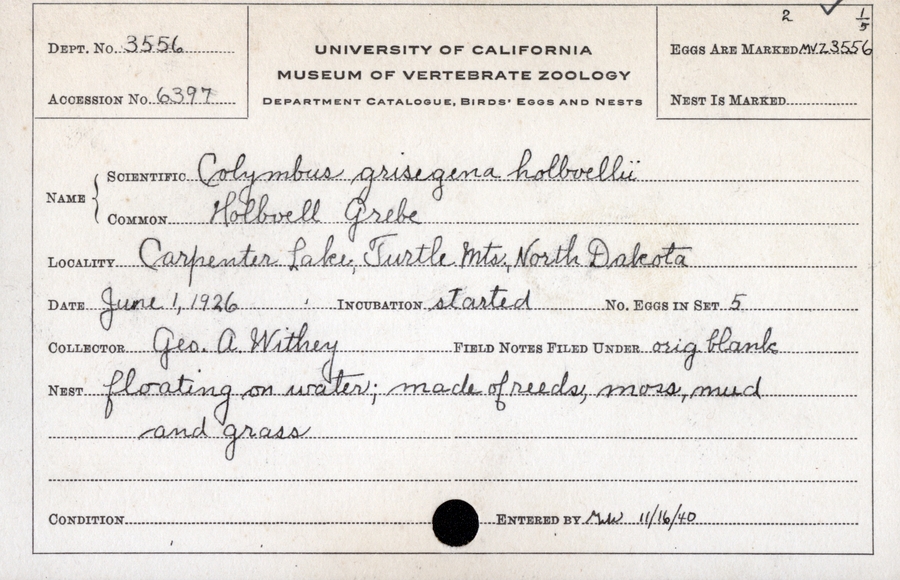 2 ✓ 1/5
DEPT. No. 3556
UNIVERSITY OF CALIFORNIA
EGGS ARE MARKED MVZ3556
MUSEUM OF VERTEBRATE ZOOLOGY
ACCESSION No. 6397
DEPARTMENT CATALOGUE, BIRDS' EGGS AND NESTS
NEST IS MARKED
NAME
SCIENTIFIC Colymbus grisegena holboellii
COMMON Holboell Grebe
LOCALITY Carpenter Lake, Turtle Mts., North Dakota
DATE June 1, 1926 INCUBATION started No. EGGS IN SET 5
COLLECTOR Geo. A. Withey FIELD NOTES FILED UNDER orig blank
NEST floating on water; made of reeds, moss, mud
and grass
CONDITION ENTERED BY 11/16/40